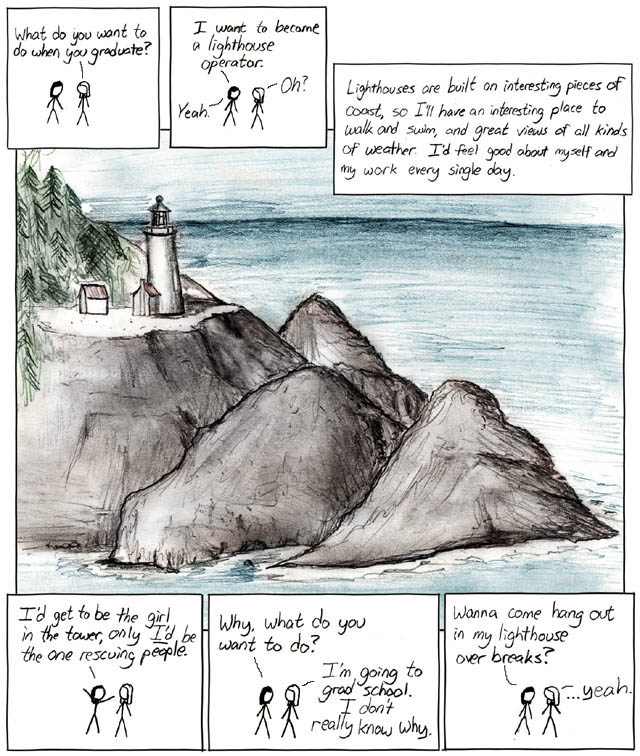 What do you want to
do when you graduate?
I want to become
a lighthouse
operator.
Oh?
Yeah.
Lighthouses are built on interesting pieces of
coast, so I'll have an interesting place to
walk and swim, and great views of all kinds
of weather. I'd feel good about myself and
my work every single day.
I'd get to be the girl
in the tower, only I'd be
the one rescuing people.
Why, what do you
want to do?
I'm going to
grad school.
I don't
really know why.
Wanna come hang out
in my lighthouse
over breaks?
...yeah.